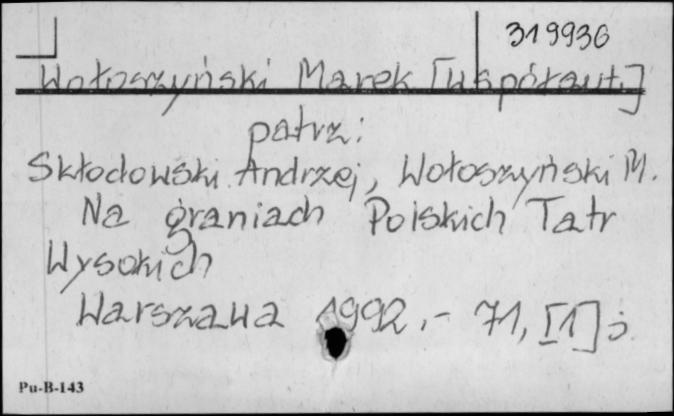 319936
Wołoszyński Marek [współaut.]
patrz:
Skłodowski Andrzej, Wołoszyński M.
Na graniach Polskich Tatr
Wysokich
Warszawa 1992.- 71, [1] s.
Pu-B-143